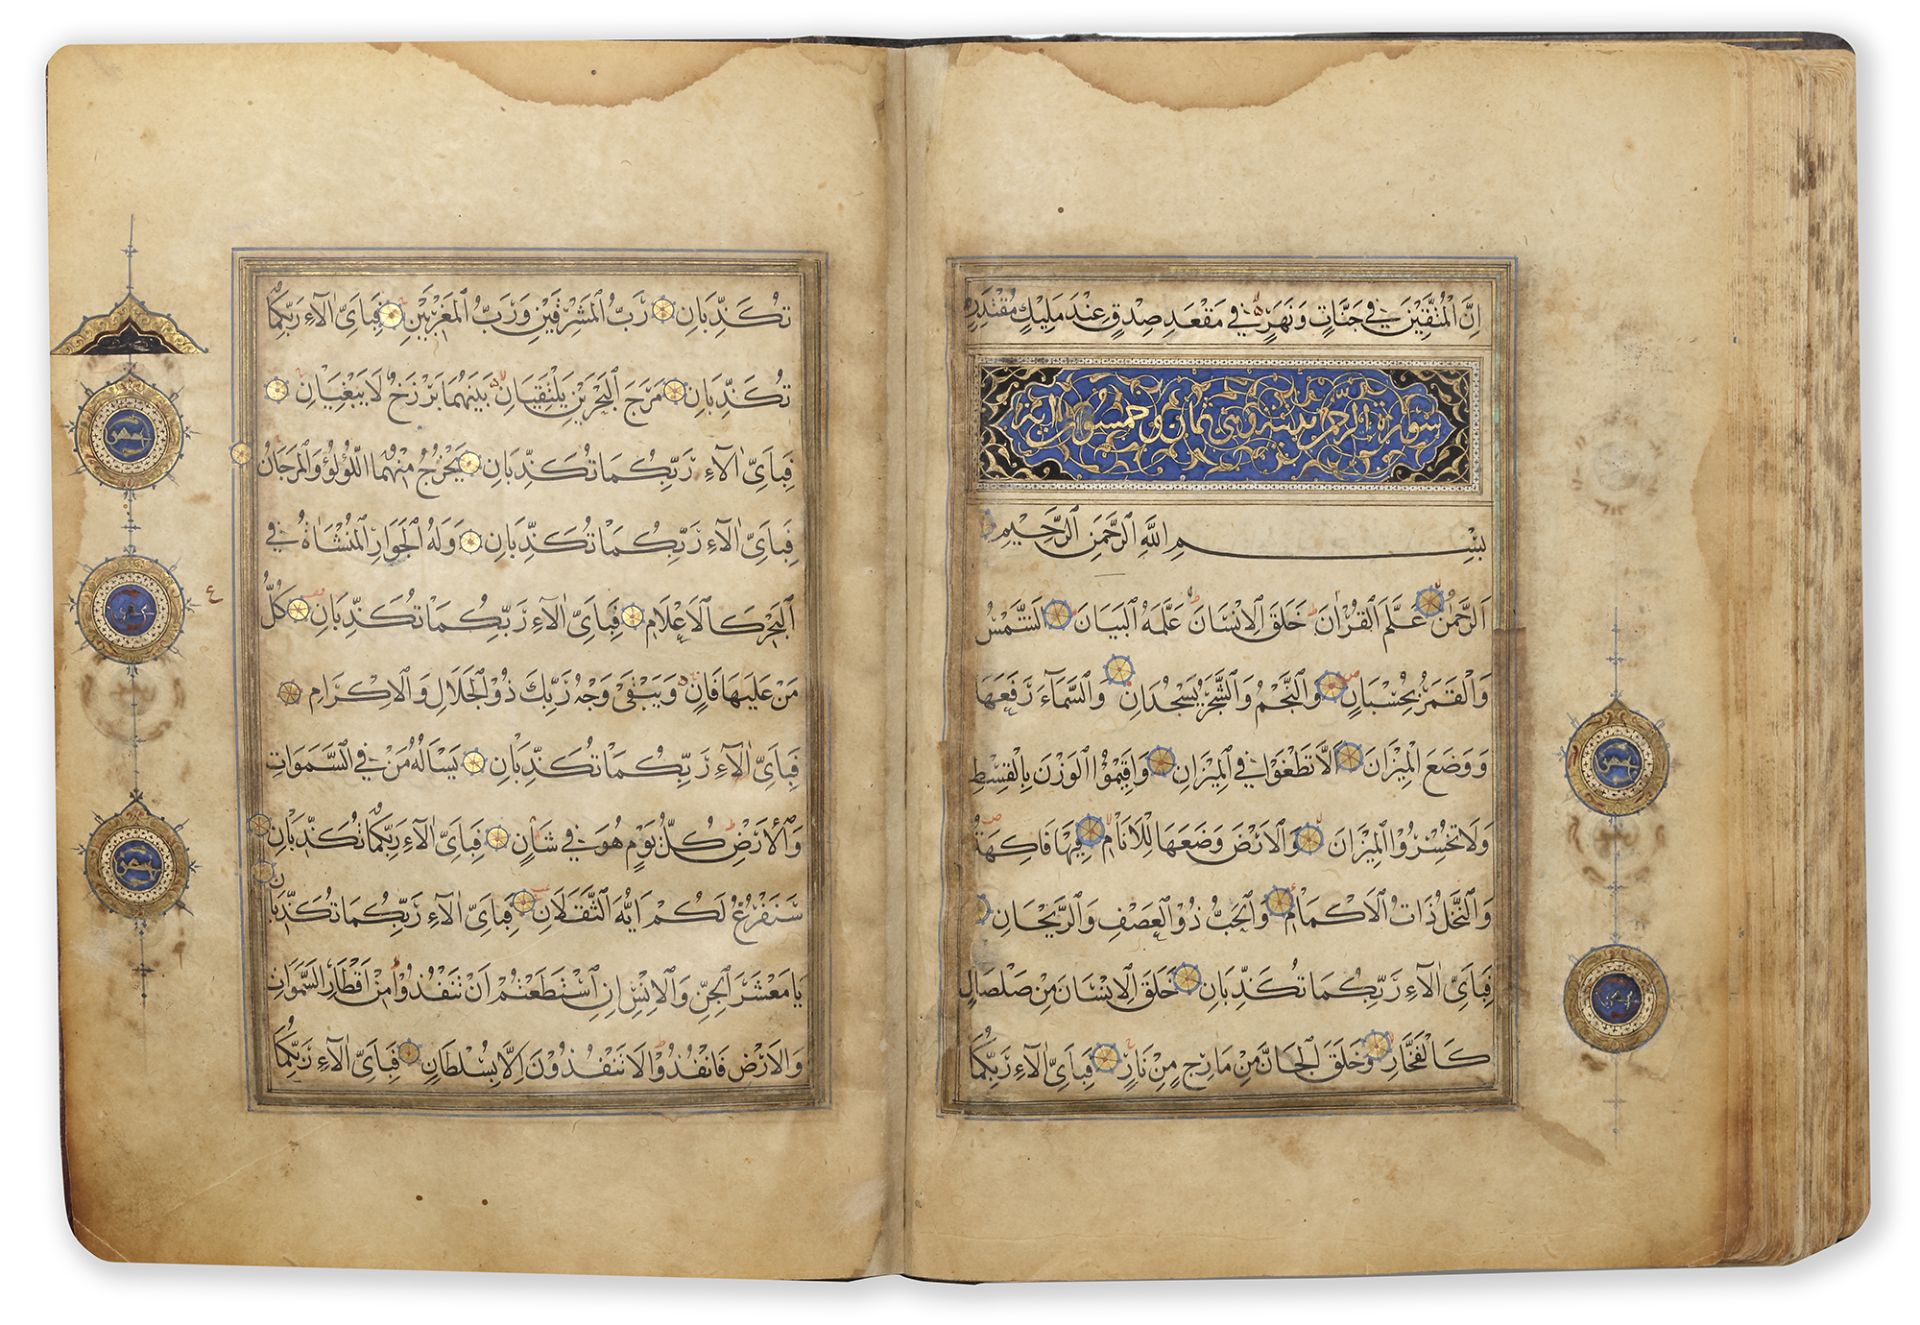 اِنَّ الْمُتَّقِيْنَ فِي جَنَّاتٍ وَنَهَرٍ فِي مَقْعَدِ صِدْقٍ عِنْدَ مَلِيْكٍ مُقْتَدِرٍ
سورة الرحمن مدنية وهي ثمان وخمسون اية
بِسْمِ اللّٰهِ الرَّحْمٰنِ الرَّحِيْمِ
اَلرَّحْمٰنُ عَلَّمَ الْقُرْاٰنَ خَلَقَ الْاِنْسَانَ عَلَّمَهُ الْبَيَانَ اَلشَّمْسُ
وَالْقَمَرُ بِحُسْبَانٍ وَالنَّجْمُ وَالشَّجَرُ يَسْجُدَانِ وَالسَّمَاءَ رَفَعَهَا
وَوَضَعَ الْمِيْزَانَ اَلَّا تَطْغَوْا فِي الْمِيْزَانِ وَاَقِيْمُوا الْوَزْنَ بِالْقِسْطِ
وَلَا تُخْسِرُوا الْمِيْزَانَ وَالْاَرْضَ وَضَعَهَا لِلْاَنَامِ فِيْهَا فَاكِهَةٌ
وَالنَّخْلُ ذَاتُ الْاَكْمَامِ وَالْحَبُّ ذُو الْعَصْفِ وَالرَّيْحَانِ
فَبِاَيِّ اٰلَاءِ رَبِّكُمَا تُكَذِّبَانِ خَلَقَ الْاِنْسَانَ مِنْ صَلْصَالٍ
كَالْفَخَّارِ وَخَلَقَ الْجَانَّ مِنْ مَارِجٍ مِنْ نَارٍ فَبِاَيِّ اٰلَاءِ رَبِّكُمَا
تُكَذِّبَانِ رَبُّ الْمَشْرِقَيْنِ وَرَبُّ الْمَغْرِبَيْنِ فَبِاَيِّ اٰلَاءِ رَبِّكُمَا
تُكَذِّبَانِ مَرَجَ الْبَحْرَيْنِ يَلْتَقِيَانِ بَيْنَهُمَا بَرْزَخٌ لَا يَبْغِيَانِ
فَبِاَيِّ اٰلَاءِ رَبِّكُمَا تُكَذِّبَانِ يَخْرُجُ مِنْهُمَا اللُّؤْلُؤُ وَالْمَرْجَانُ
فَبِاَيِّ اٰلَاءِ رَبِّكُمَا تُكَذِّبَانِ وَلَهُ الْجَوَارِ الْمُنْشَاٰتُ فِي
الْبَحْرِ كَالْاَعْلَامِ فَبِاَيِّ اٰلَاءِ رَبِّكُمَا تُكَذِّبَانِ كُلُّ
مَنْ عَلَيْهَا فَانٍ وَيَبْقَى وَجْهُ رَبِّكَ ذُو الْجَلَالِ وَالْاِكْرَامِ
فَبِاَيِّ اٰلَاءِ رَبِّكُمَا تُكَذِّبَانِ يَسْاَلُهُ مَنْ فِي السَّمَوَاتِ
وَالْاَرْضِ كُلَّ يَوْمٍ هُوَ فِي شَاْنٍ فَبِاَيِّ اٰلَاءِ رَبِّكُمَا تُكَذِّبَانِ
سَنَفْرُغُ لَكُمْ اَيُّهَ الثَّقَلَانِ فَبِاَيِّ اٰلَاءِ رَبِّكُمَا تُكَذِّبَانِ
يَا مَعْشَرَ الْجِنِّ وَالْاِنْسِ اِنِ اسْتَطَعْتُمْ اَنْ تَنْفُذُوا مِنْ اَقْطَارِ السَّمَوَاتِ
وَالْاَرْضِ فَانْفُذُوا لَا تَنْفُذُوْنَ اِلَّا بِسُلْطَانٍ فَبِاَيِّ اٰلَاءِ رَبِّكُمَا